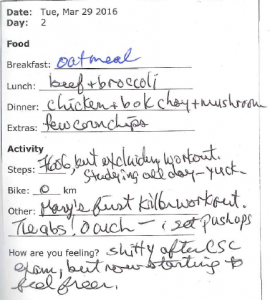 Date: Tue, Mar 29 2016
Day: 2
Food
Breakfast: oatmeal
Lunch: beef + broccoli
Dinner: chicken + bok choy + mushroom
Extras: few corn chips
Activity
Steps: 7606, but excluding workout.
Studying all day - yuck
Bike: 0 km
Other: Mary's first killer workout.
The abs! Oouch - i set pushops
How are you feeling? shitty after CSC
exam, but now starting to
feel freer.